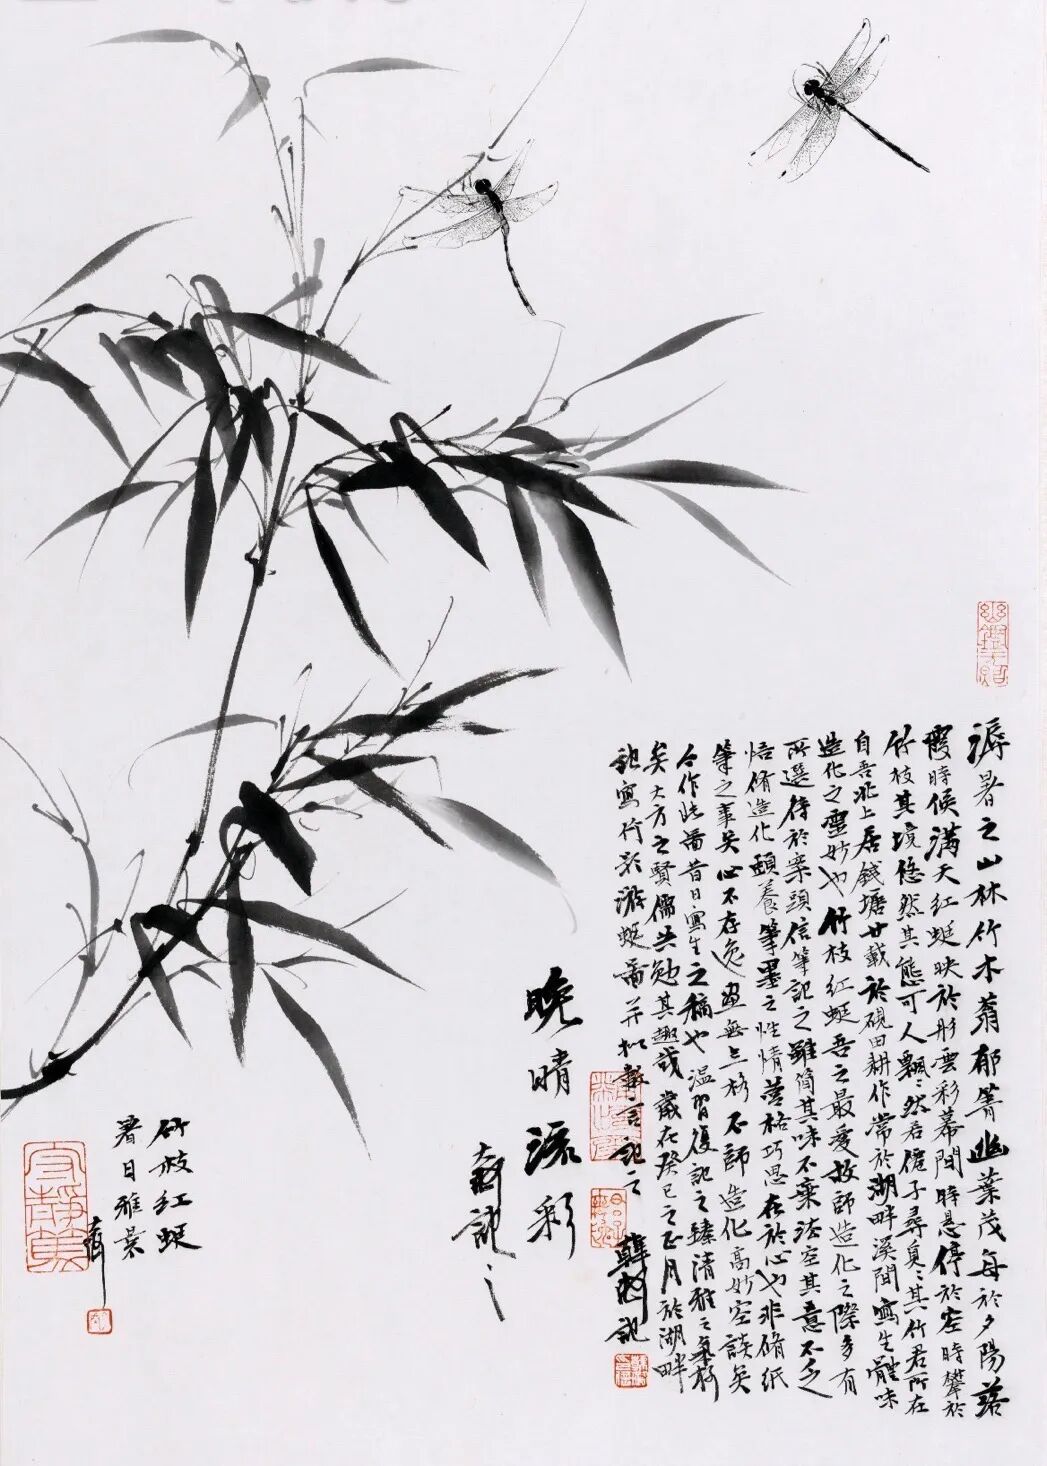 溽暑之山林竹木蓊郁箐幽葉茂每於夕陽落
霞時候滿天紅蜓映於彤雲彩幕間時悬停於空時攀於
竹枝其境悠然其態可人飄飄然若僊子尋臭其竹君所在
自吾北上居錢塘廿載於硯田耕作常於湖畔溪間寫生體味
造化之靈妙也竹枝紅蜓吾之最愛故師造化之際多有
所選待於案頭信筆記之雖简其味不棄法空其意不乏
悟脩造化頤養筆墨之性情落格巧思在於心也非脩纸
筆之事矣心不存逸畫無上格不師造化高妙空談矣
今作此畵昔日寫生之稿也温習復記之臻清雅之氣格
矣大方之賢儒共勉其趣哉歲在癸巳之正月於湖畔
寫竹影游蜓啚并拟數言記之
晚晴流彩
記之
竹枝紅蜓
署日雅景